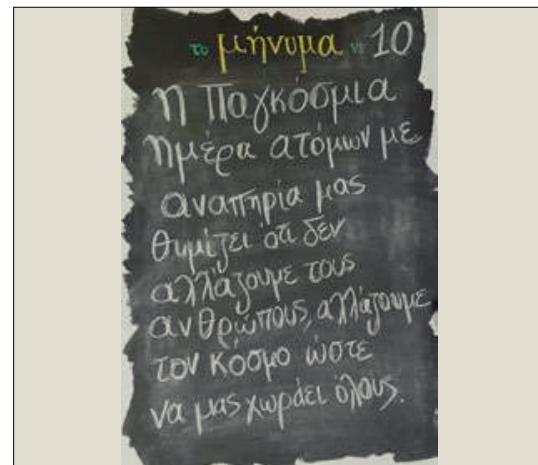 το μήνυμα νο 10
η Παγκόσμια
ημέρα ατόμων με
αναπηρία μας
θυμίζει ότι δεν
αλλάζουμε τους
ανθρώπους, αλλάζουμε
τον κόσμο ώστε
να μας χωράει όλους.